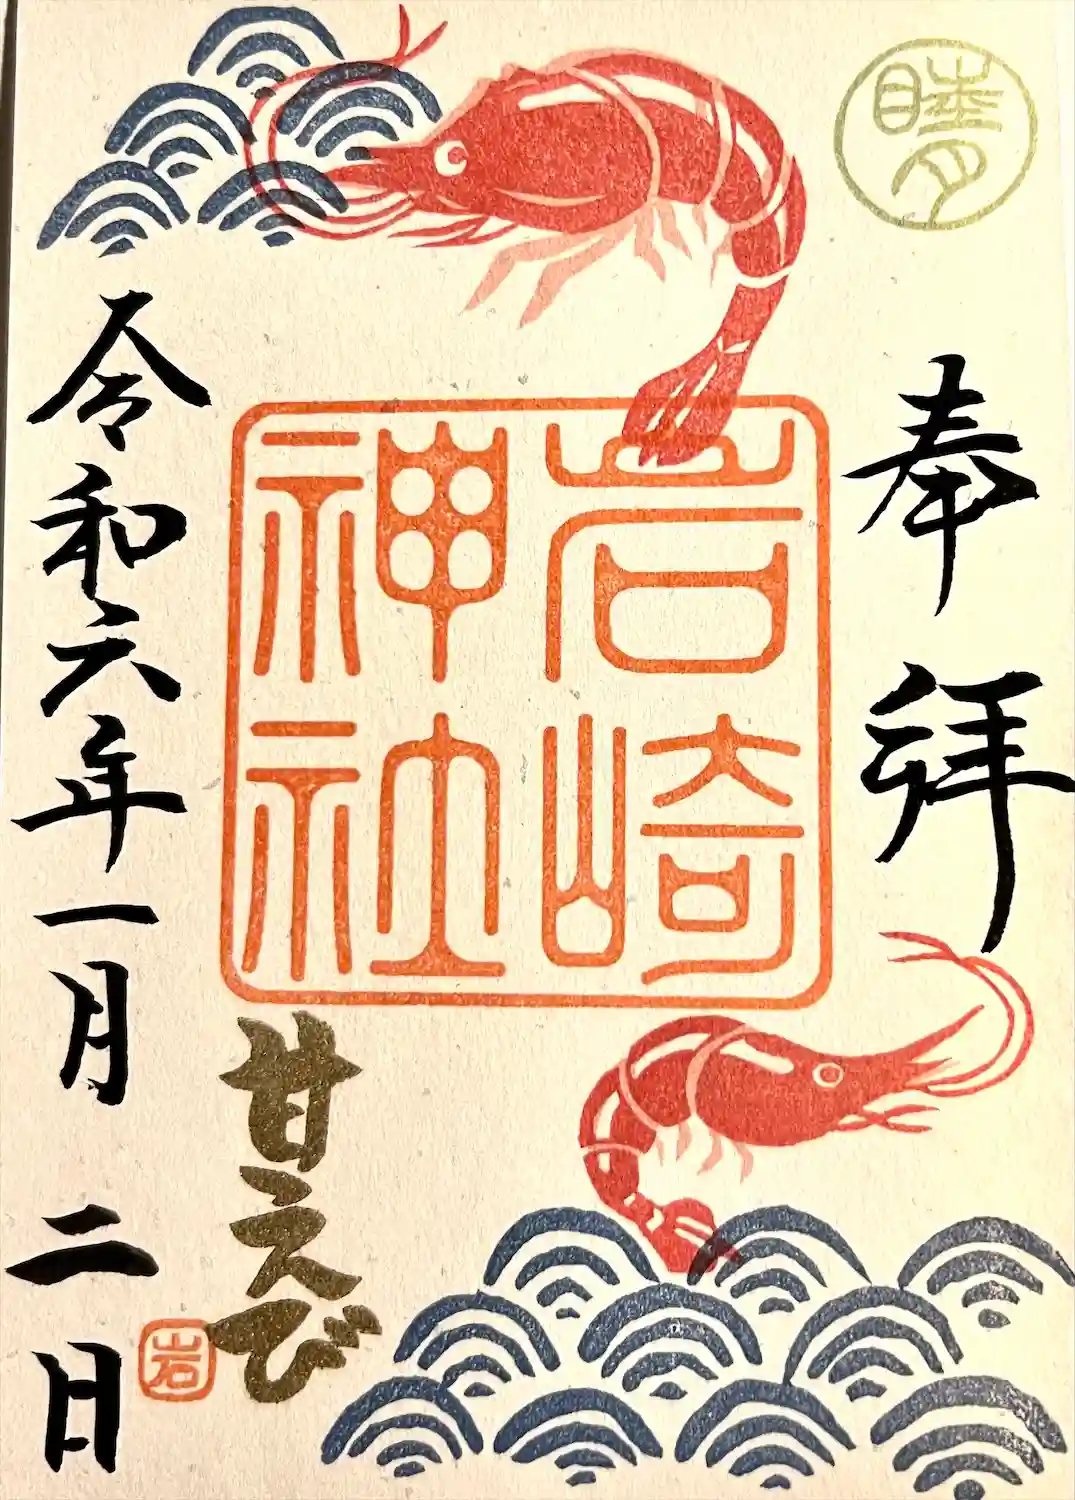 睦月
奉拝
岩崎
神社
甘えび
岩
令和六年一月二日